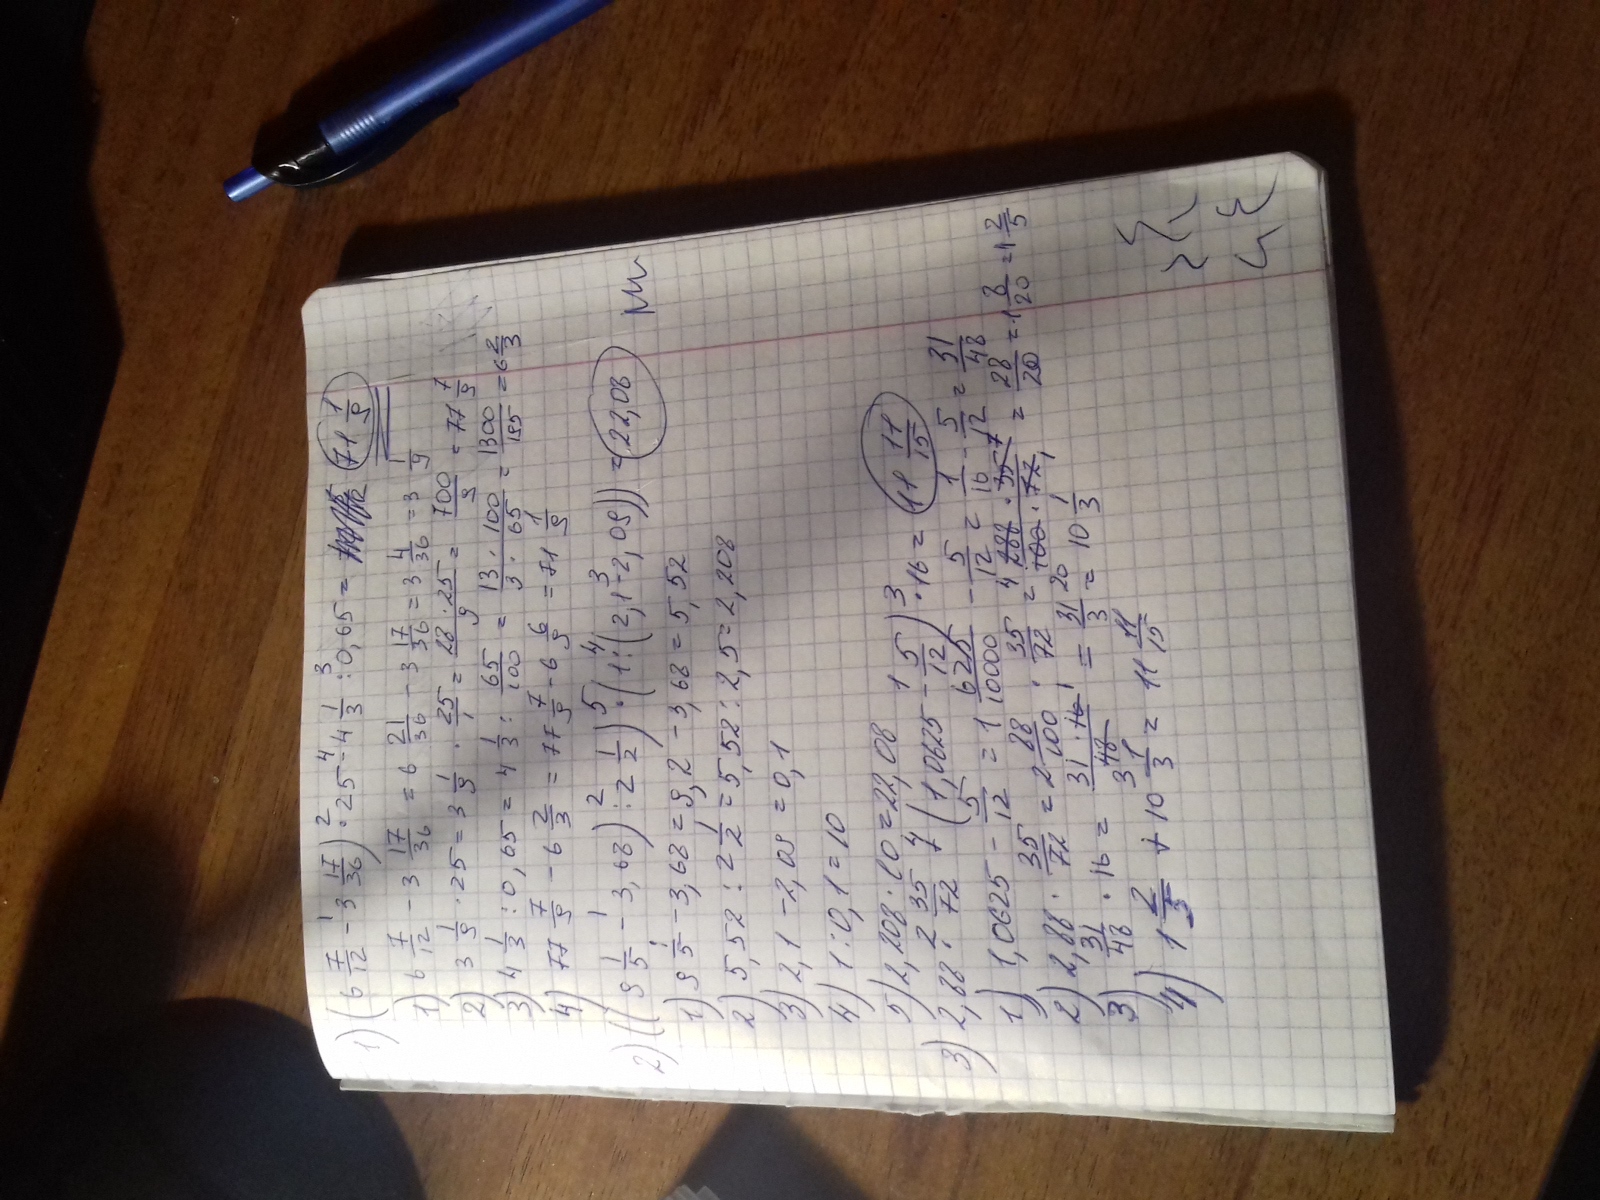 1) (6 7/12 - 3 17/36) · 25 - 4 1/3 : 0,65 = 71 1/9
1) 6 7/12 - 3 17/36 = 6 21/36 - 3 17/36 = 3 4/36 = 3 1/9
2) 3 1/9 · 25 = 3 1/9 · 25/1 = 28·25/9 = 700/9 = 77 7/9
3) 4 1/3 : 0,65 = 4 1/3 : 65/100 = 13·100/3·65 = 1300/195 = 6 2/3
4) 77 7/9 - 6 2/3 = 77 7/9 - 6 6/9 = 71 1/9
2) ((9 1/5 - 3,68) : 2 1/2) · (1 : (2,1 - 2,09)) = 22,08
1) 9 1/5 - 3,68 = 9,2 - 3,68 = 5,52
2) 5,52 : 2 1/2 = 5,52 : 2,5 = 2,208
3) 2,1 - 2,09 = 0,1
4) 1 : 0,1 = 10
5) 2,208 · 10 = 22,08
3) 2,88 · 35/72 + (1,0625 - 5/12) · 16 = 11 11/15
1) 1,0625 - 5/12 = 1 625/10000 - 5/12 = 1 1/16 - 5/12 = 31/48
2) 2,88 · 35/72 = 2 88/100 · 35/72 = 288·35/100·72 = 28/20 = 1 8/20 = 1 2/5
3) 31/48 · 16 = 31·16/48 = 31/3 = 10 1/3
4) 1 2/5 + 10 1/3 = 11 11/15